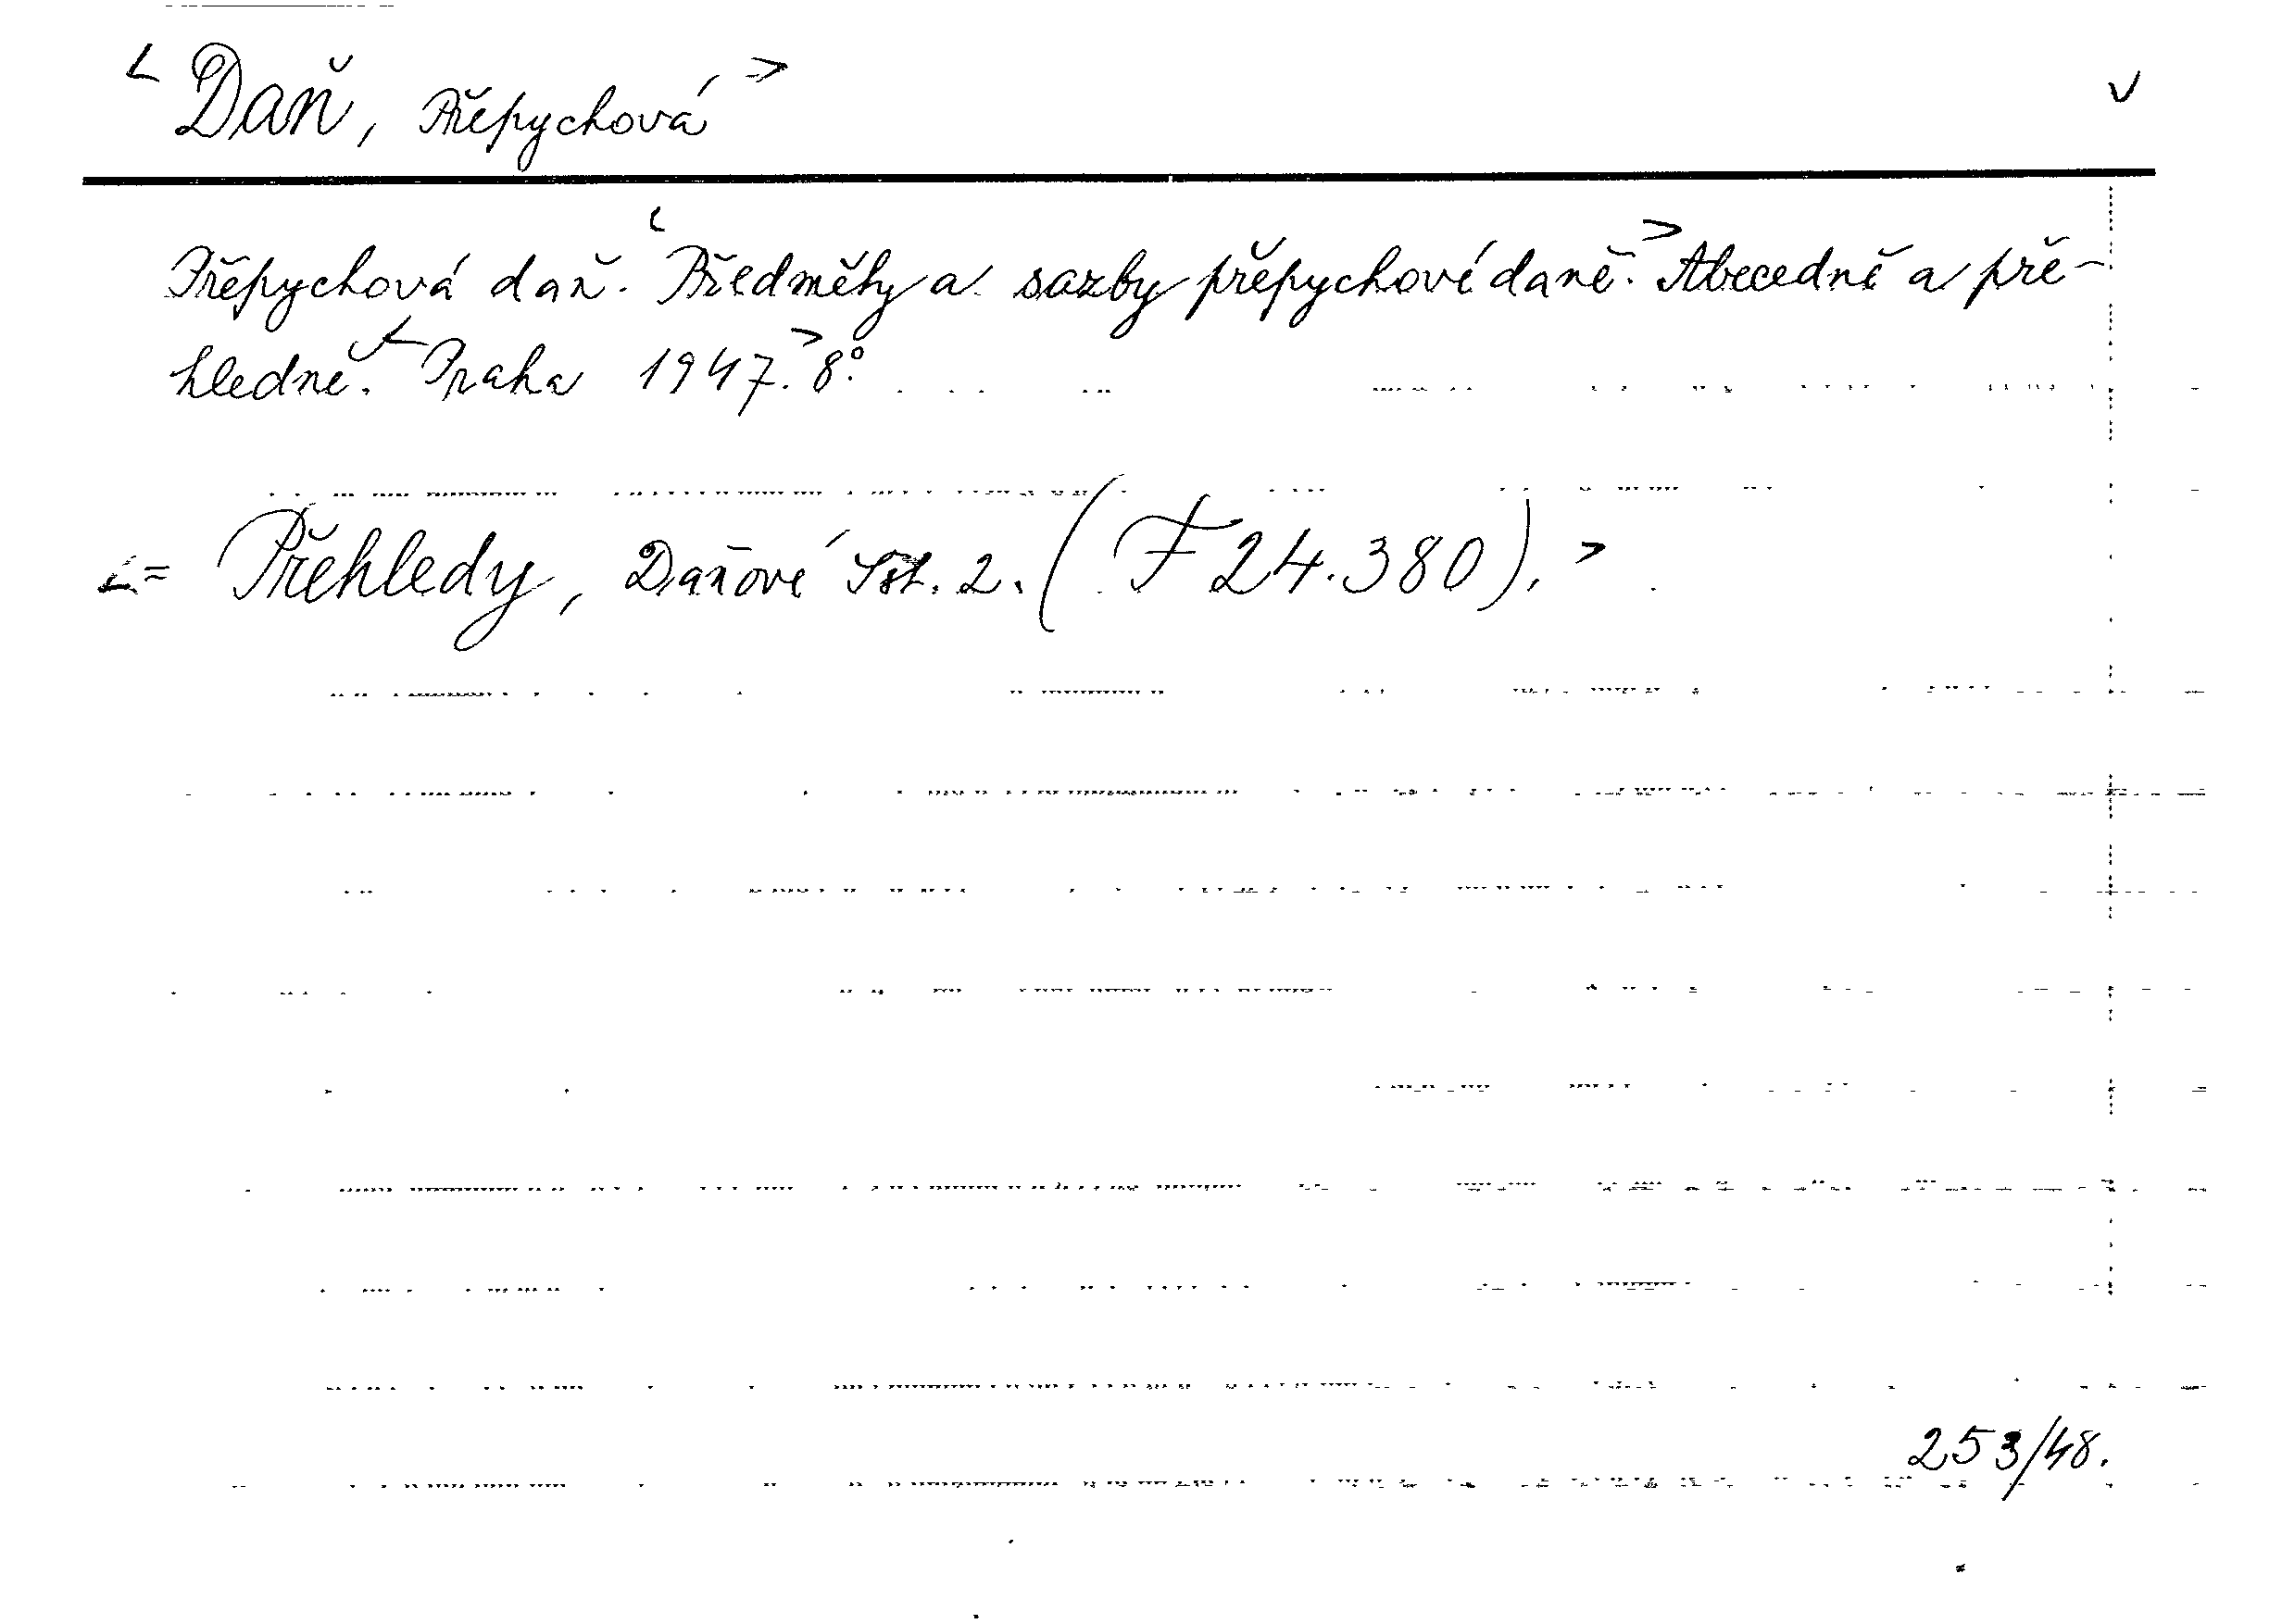 < Daň, Přepychová > v
Přepychová daň. < Předměty a sazby přepychové daně. > Abecedně a pře-
hledně. < Praha 1947. > 8°.
< = Přehledy, Daňové Sst. 2. (F 24.380). >
253/48.